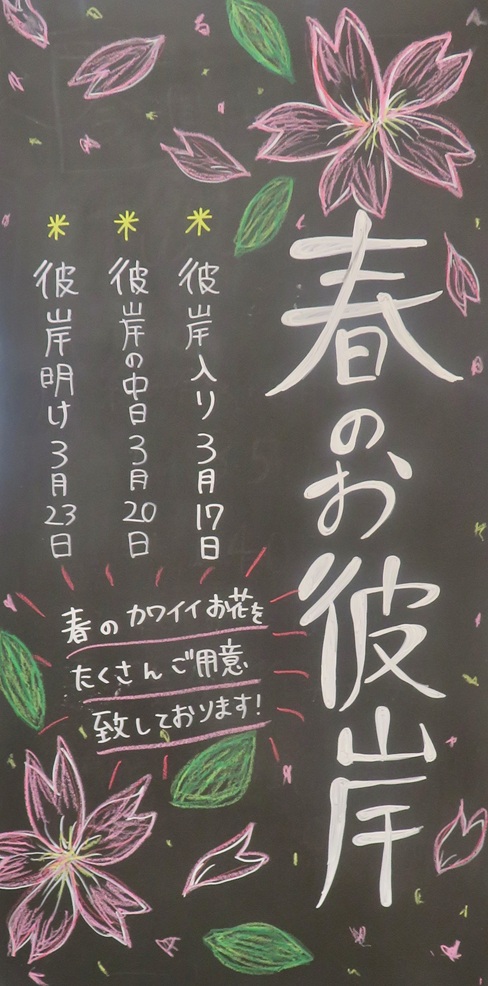 春のお彼岸
＊彼岸入り3月17日
＊彼岸の中日3月20日
＊彼岸明け3月23日
春のカワイイお花を
たくさんご用意
致しております!